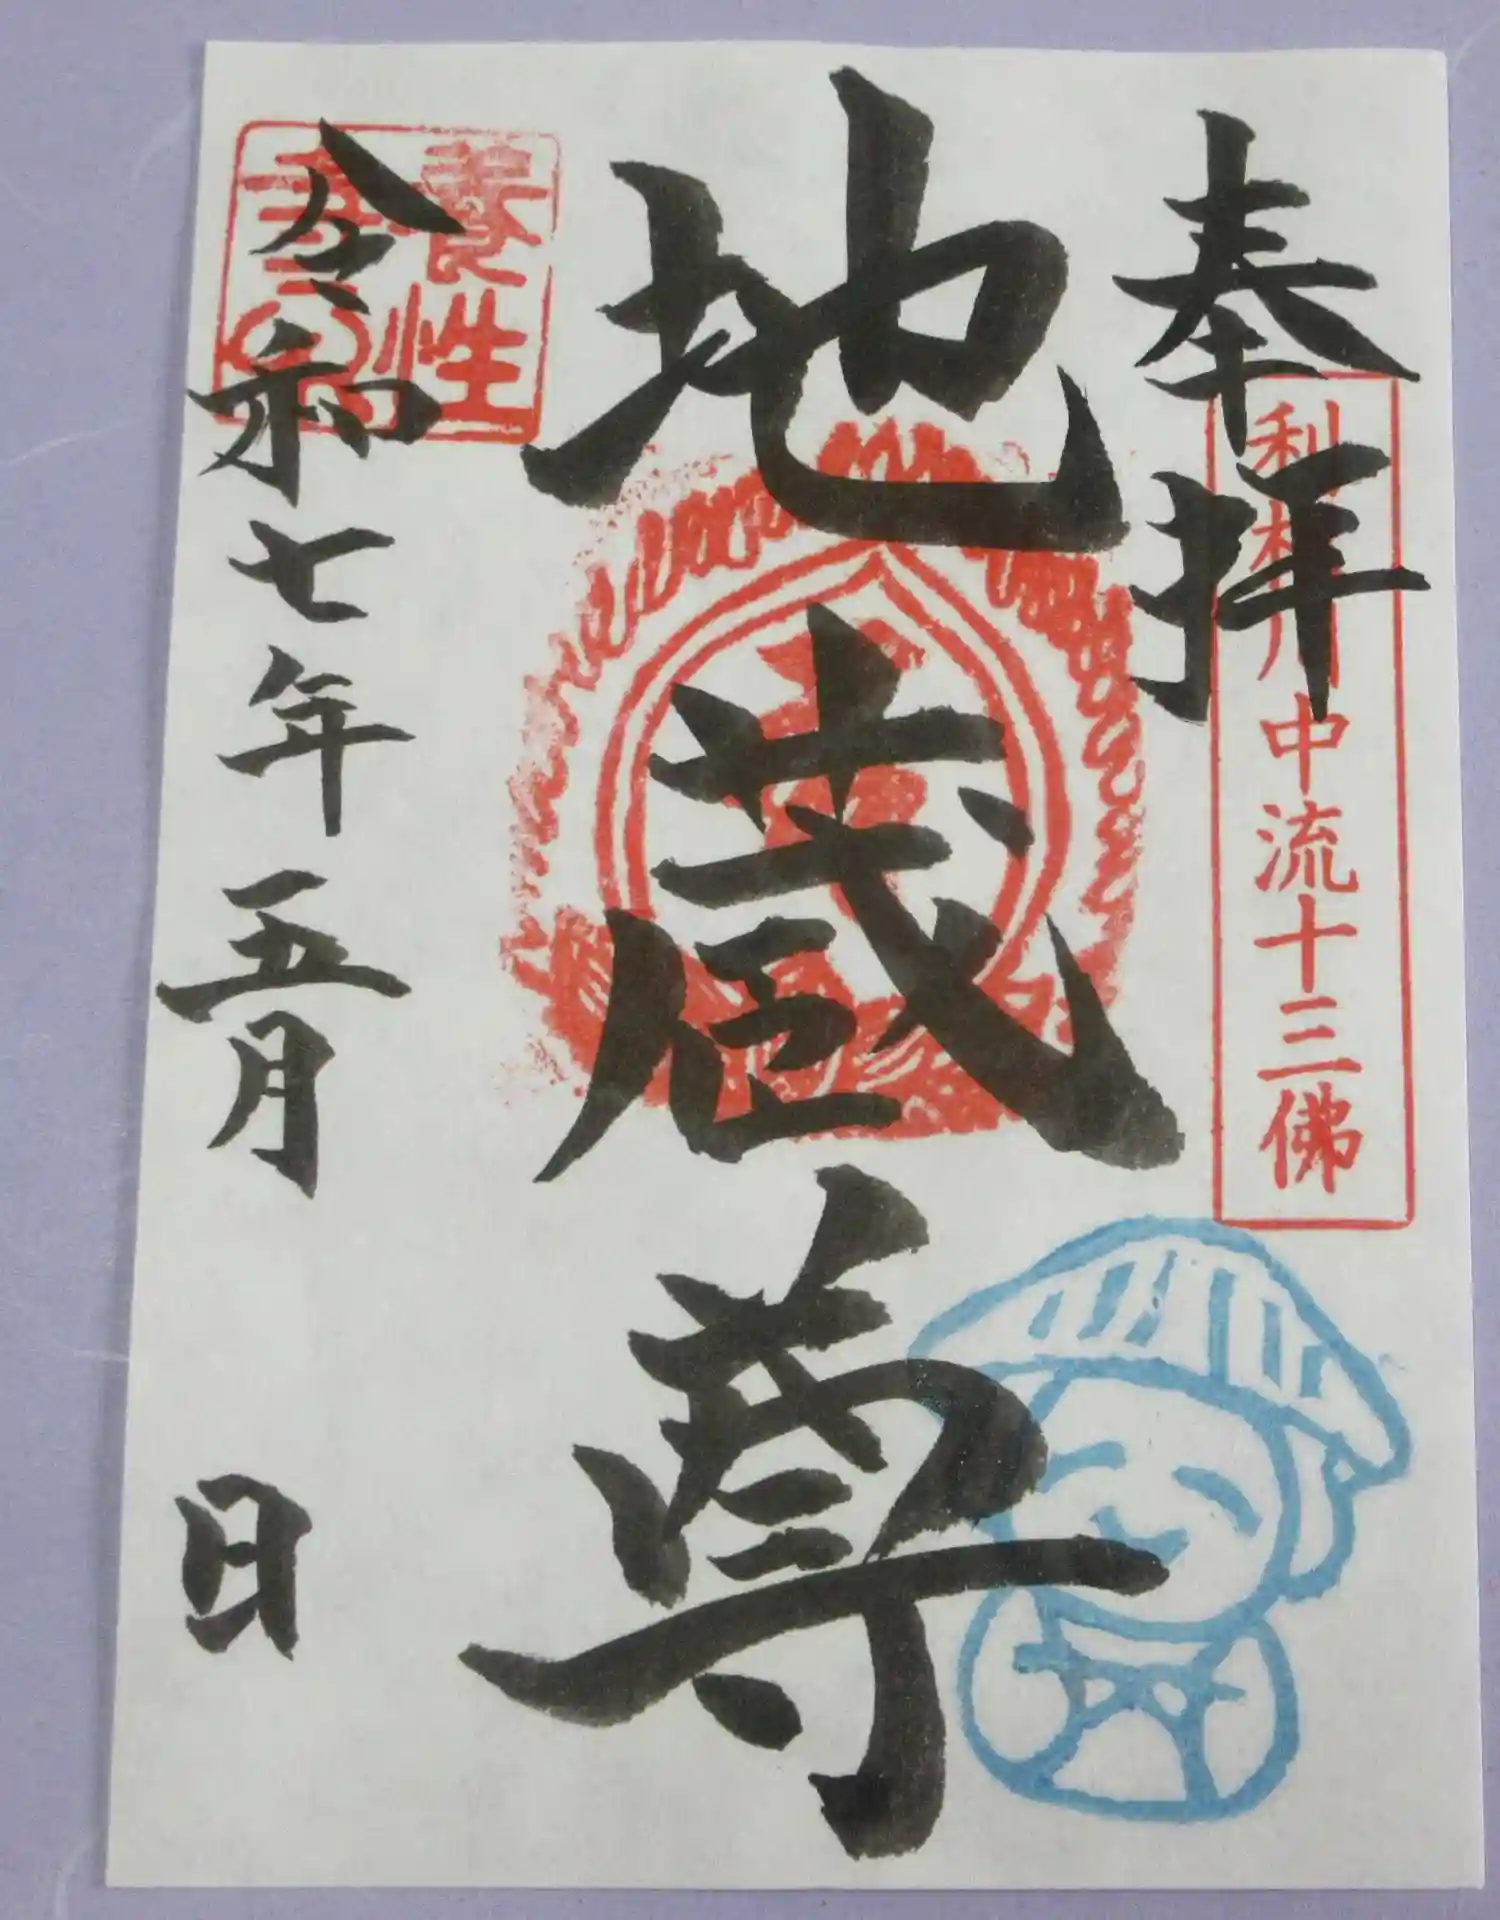 奉拝
利根川中流十三佛
地蔵尊
養性
寺印
令和七年五月 日